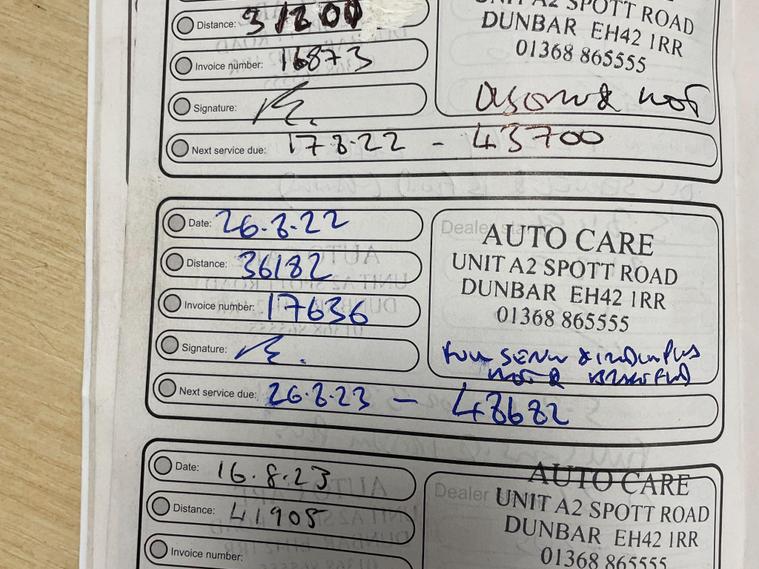 Distance: 31200
Invoice number: 16873
Signature:
Next service due: 17.8.22 - 43700
A2 SPOTT ROAD
DUNBAR EH42 1RR
01368 865555
NOT
Date: 26.8.22
Distance: 36182
Invoice number: 17636
Signature:
Next service due: 26.8.23 - 48682
Dealer
AUTO CARE
UNIT A2 SPOTT ROAD
DUNBAR EH42 1RR
01368 865555
FULL
MOT &
Date: 16.8.23
Distance: 41905
Invoice number:
Dealer
AUTO CARE
UNIT A2 SPOTT ROAD
DUNBAR EH42 1RR
01368 865555